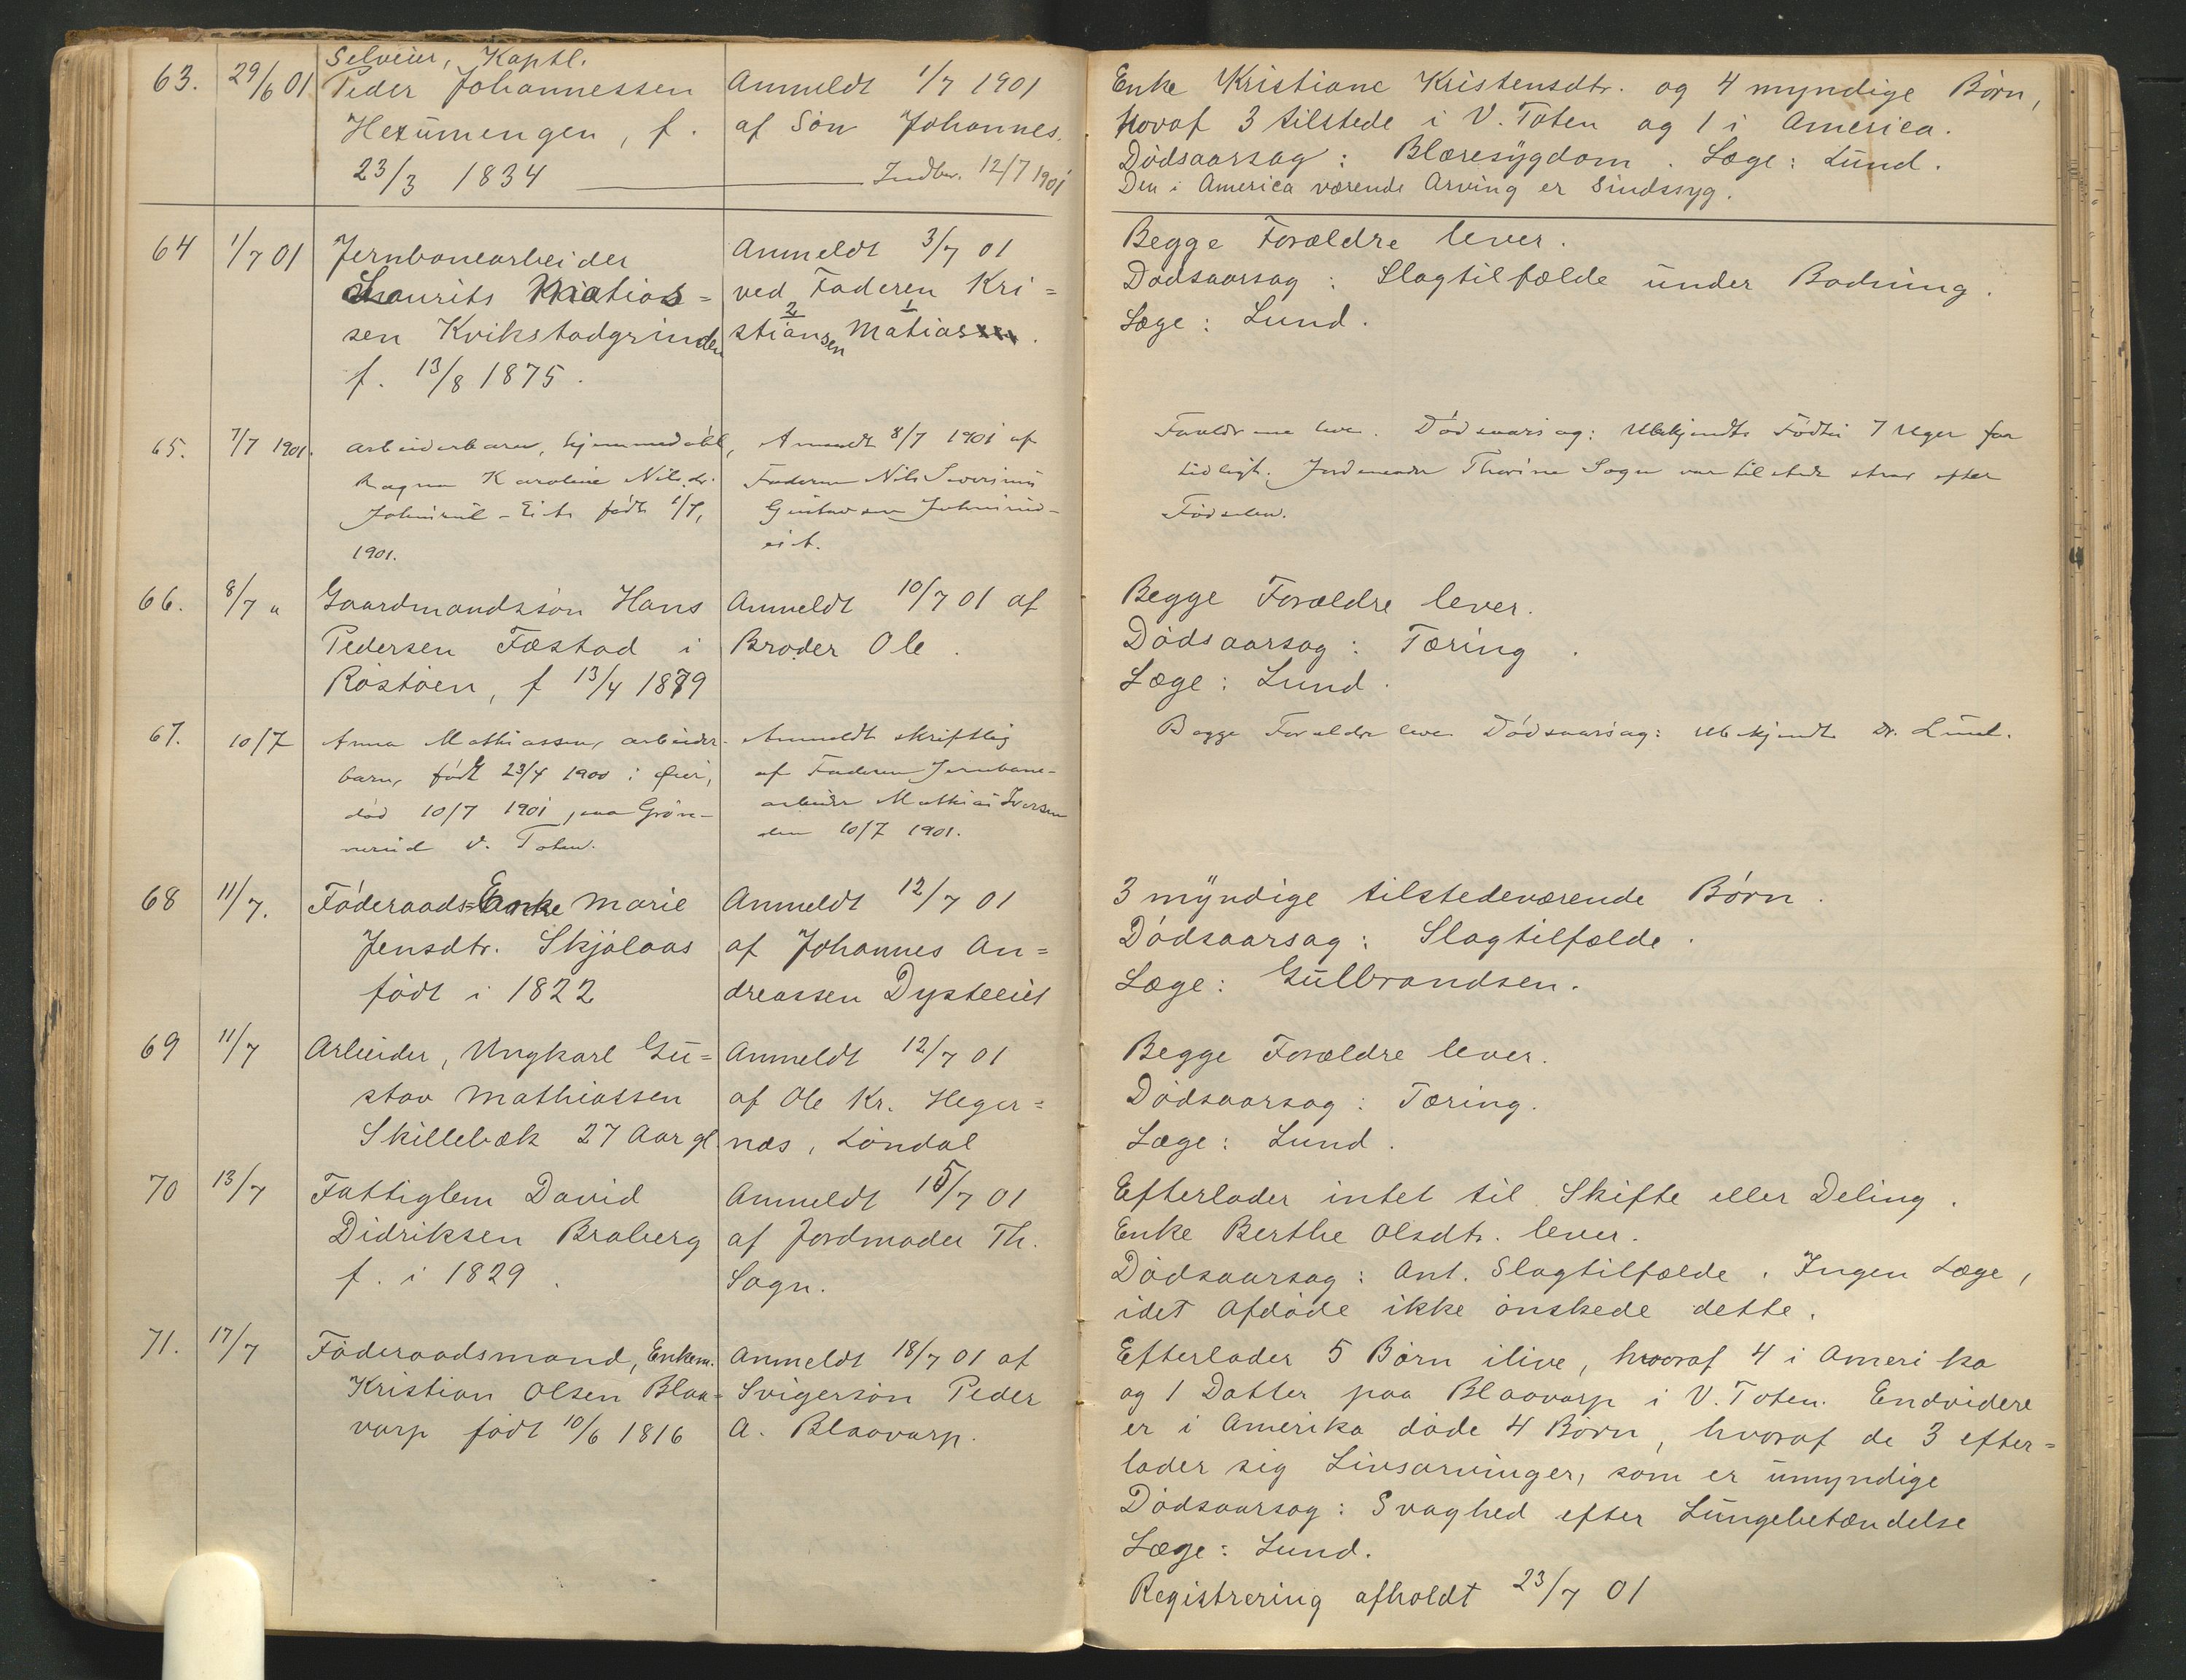 Selveier, Kaptl.
63. 29/6 01 Peder Johannessen
Hexumengen, f.
23/3 1834
Anmeldt 1/7 1901
af Søn Johannes.
Indber. 12/7 1901
Enke Kristiane Kristensdtr. og 4 myndige Børn,
hvoraf 3 tilstede i V. Toten og 1 i America.
Dødsaarsag: Blæresygdom. Læge: Lund.
Den i America værende Arving er Sindssyg.
64 1/7 01 Jernbanearbeider
Laurits Matias=
sen Kvikstadgrinden
f. 13/8 1875.
Anmeldt 3/7 01
ved Faderen Kri=
2 1
stiansen Matias.
Begge Forældre lever.
Dødsaarsag: Slagtilfælde under Badning.
Læge: Lund.
65. 7/7 1901. Arbeiderbarn, hjemmedøbt,
Ragna Karoline Nilsdr.
Johnsrud-Eie født 1/7,
1901.
Anmeldt 8/7 1901 af
Faderen Nils Severinus
Gustavsen Johnsrud-
eie.
Forældrene lever. Dødsaarsag: Ubekjendt. Født 7 Uger for
tidligt. Jordemoder Thorine Sogn var tilstede strax efter
Fødselen.
66. 8/7 " Gaardmandssøn Hans
Pedersen Fæstad i
Røstøen, f 13/4 1879
Anmeldt 10/7 01 af
Broder Ole.
Begge Forældre lever.
Dødsaarsag: Tæring.
Læge: Lund.
67. 10/7 Anna Mathiassen, arbeider-
barn, født 23/4 1900 i Øier,
død 10/7 1901 paa Grøn-
nerud V. Toten.
Anmeldt skriftlig
af Faderen Jernbane-
arbeider Mathias Iversen
den 10/7 1901.
Begge Forældre lever. Dødsaarsag: Ubekjendt. Dr. Lund.
68 11/7. Føderaads=Enke Marie
Jensdtr. Skjølaas
født i 1822
Anmeldt 12/7 01
af Johannes An=
dreassen Dysteeiet
3 myndige tilstedeværende Børn.
Dødsaarsag: Slagtilfælde.
Læge: Gulbrandsen.
69 11/7 Arbeider, Ungkarl Gu=
stav Mathiassen
Skillebæk 27 Aar gl.
Anmeldt 12/7 01
af Ole Kr. Heger=
næs, Løndal
Begge Forældre lever.
Dødsaarsag: Tæring.
Læge: Lund.
70 13/7 Fattiglem David
Didriksen Braberg
f. i 1829.
Anmeldt 15/7 01
af Jordmoder Th.
Sogn.
Efterlader intet til Skifte eller Deling.
Enke Berthe Olsdtr. lever.
Dødsaarsag: Ant. Slagtilfælde. Ingen Læge,
idet Afdøde ikke ønskede dette.
71. 17/7 Føderaadsmand, Enkem.
Kristian Olsen Blaa=
varp født 10/6 1816
Anmeldt 18/7 01 af
Svigersøn Peder
A. Blaavarp.
Efterlader 5 Børn ilive, hvoraf 4 i Amerika
og 1 Datter paa Blaavarp i V. Toten. Endvidere
er i Amerika døde 4 Børn, hvoraf de 3 efter=
lader sig Livsarvinger, som er umyndige
Dødsaarsag: Svaghed efter Lungebetændelse
Læge: Lund.
Registrering afholdt 23/7 01